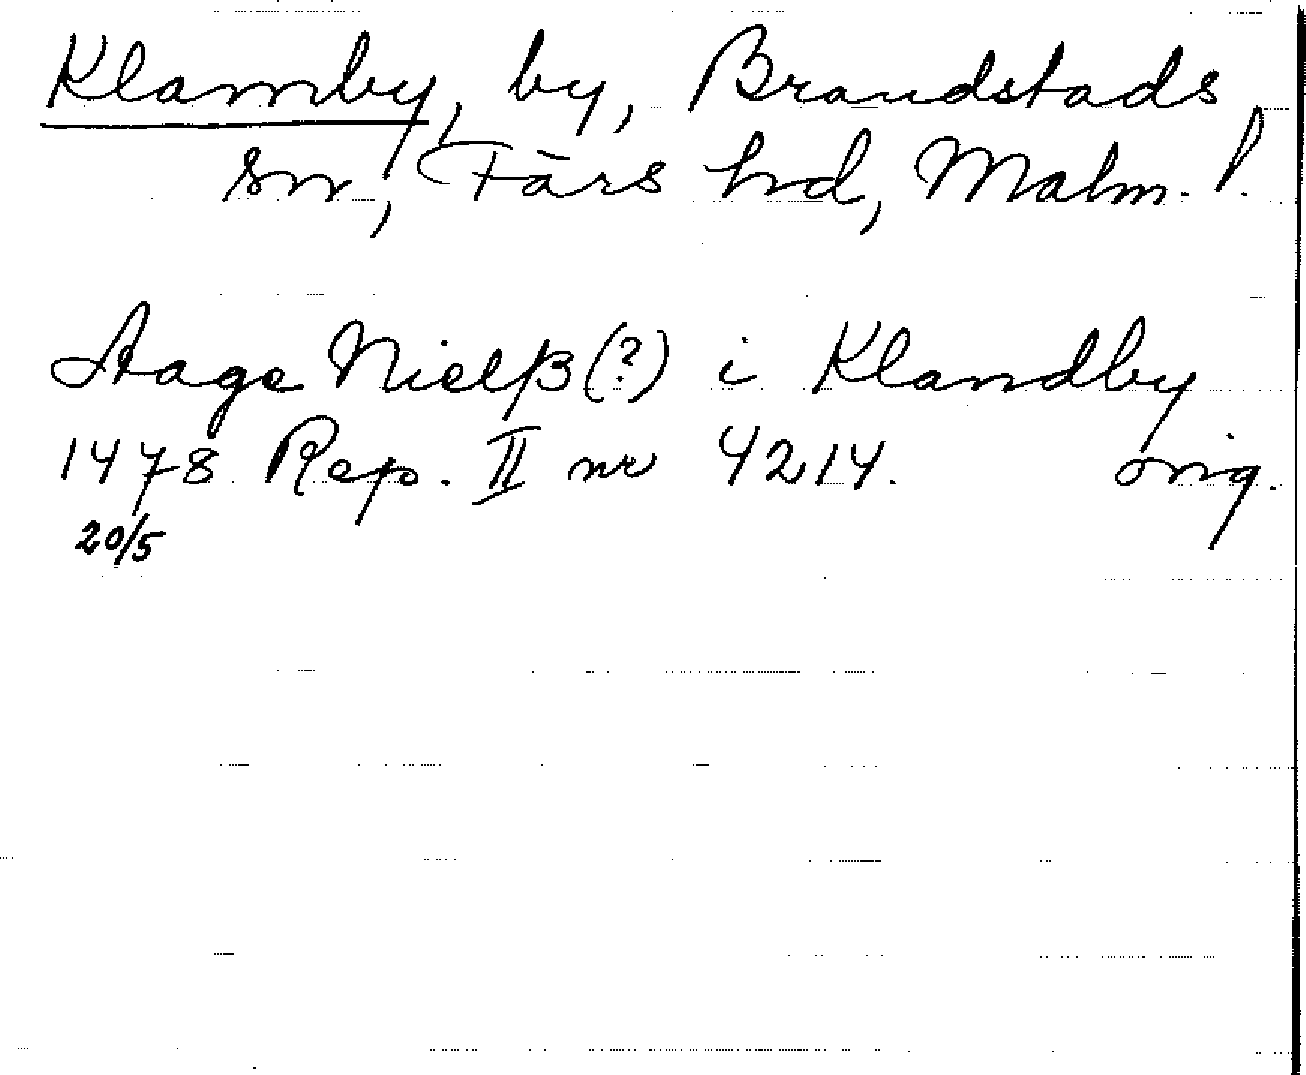 Klamby, by, Brandstads
sn, Färs hd, Malm. l.
Aage Nielß(?) i Klandby
1478 Rep. II nr 4214. orig.
20/5